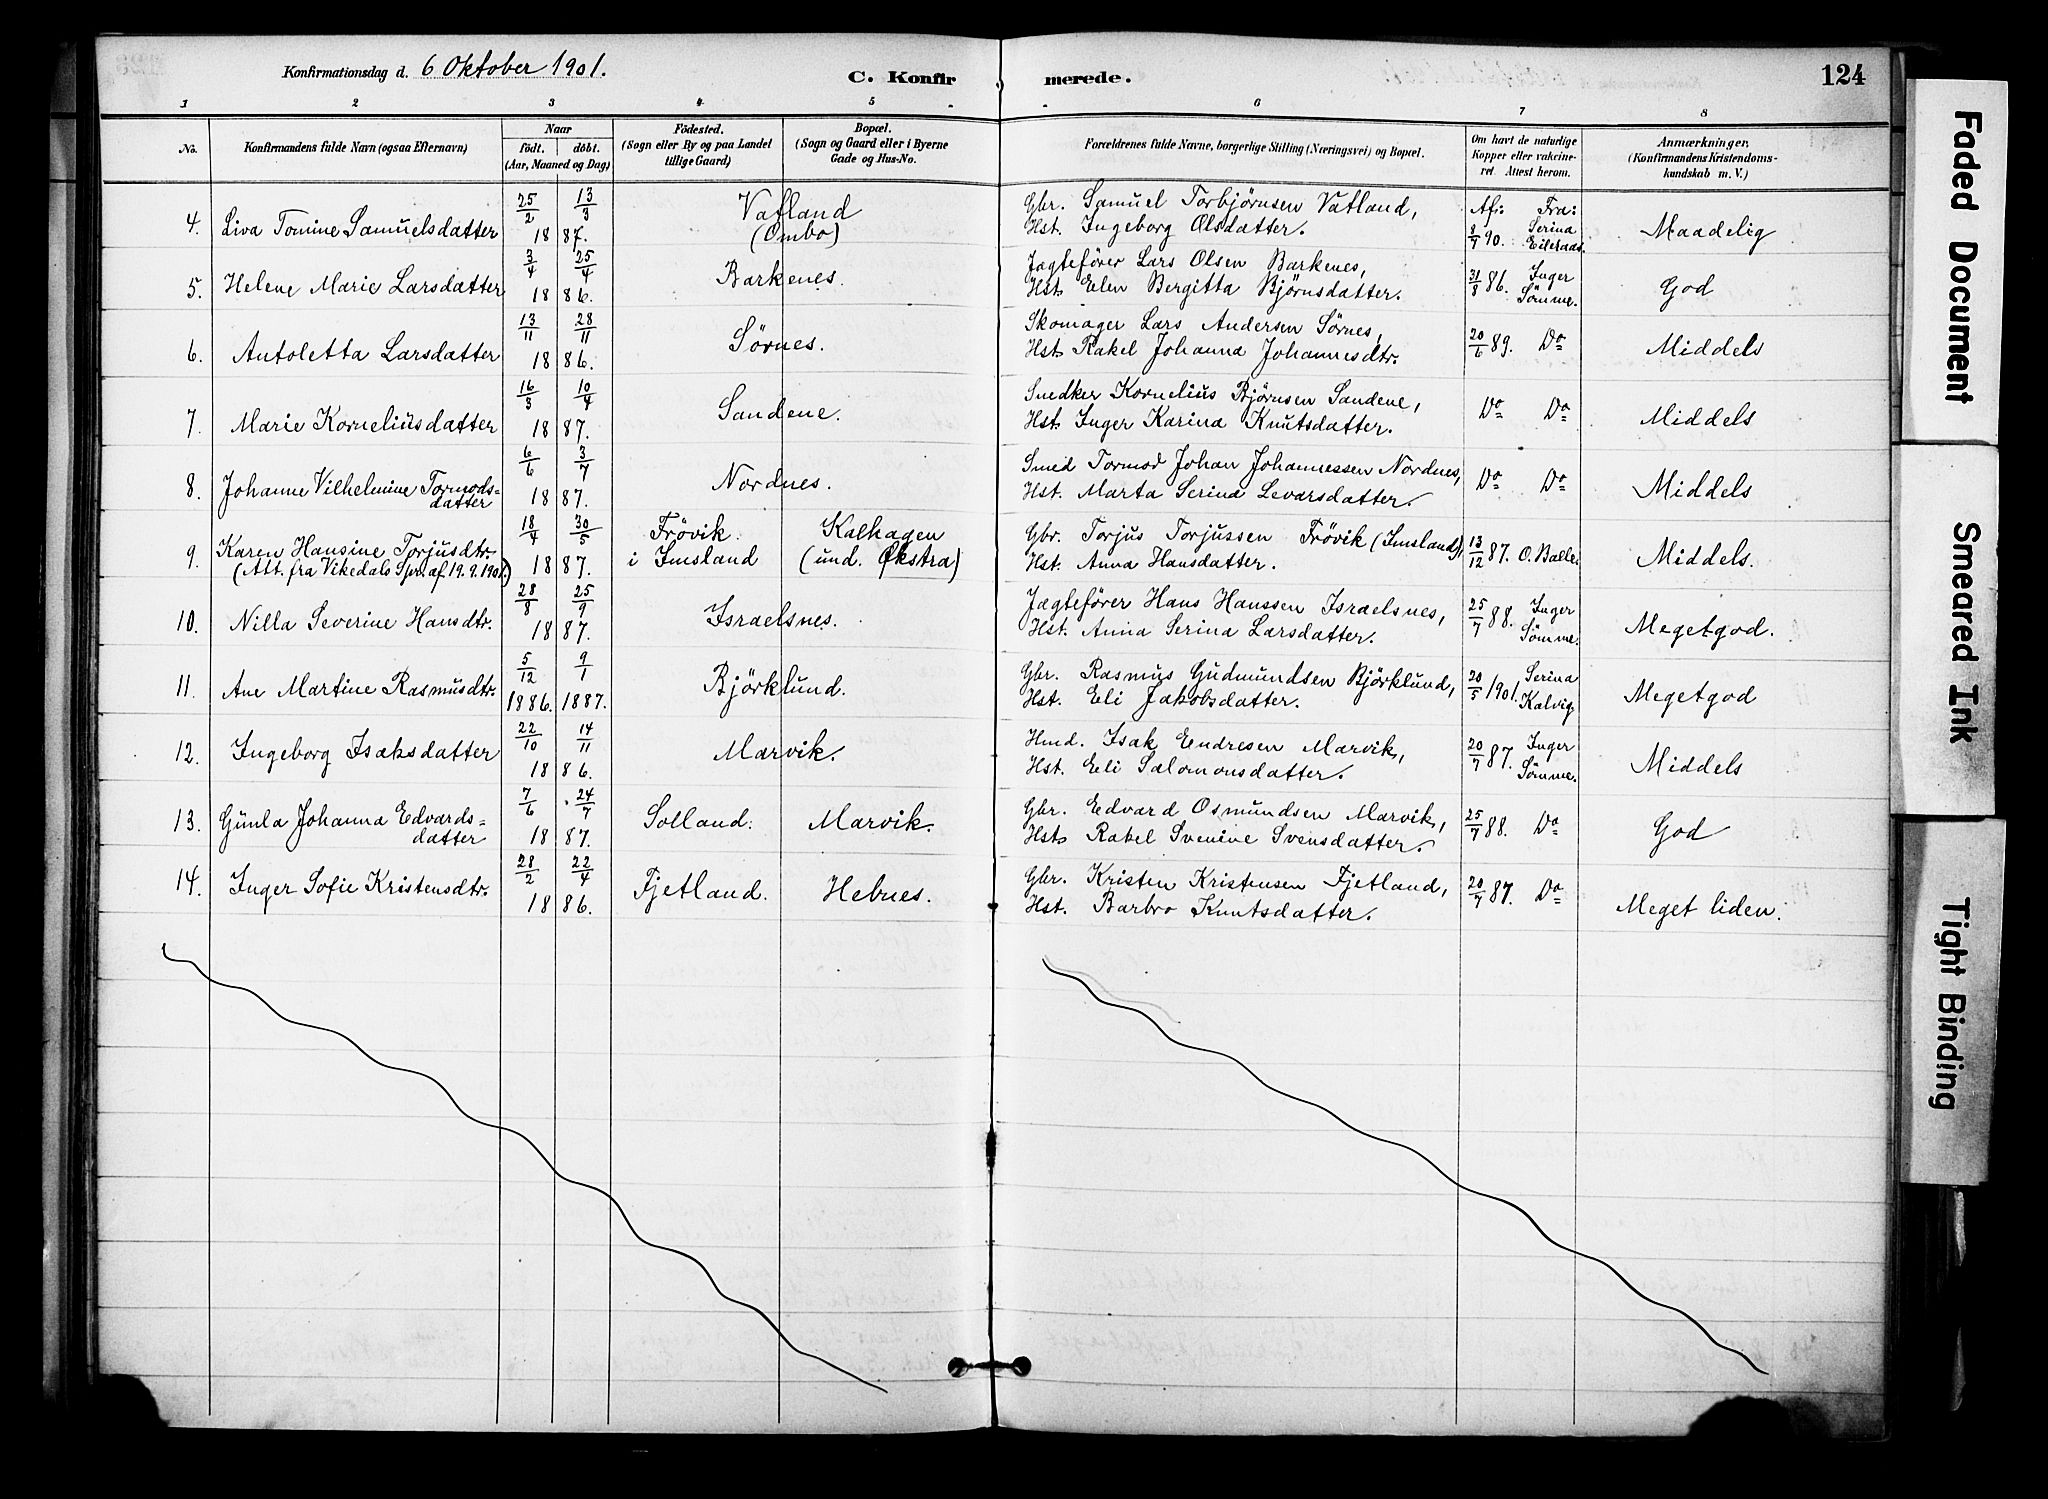 Konfirmationsdag d. 6 Oktober 1901.
C. Konfirmerede.
124
1 2 3 4 5 6 7 8
No.
Konfirmandens fulde Navn (ogsaa Efternavn)
Naar
født. døbt.
(Aar, Maaned og Dag)
Fødested.
(Sogn eller By og paa Landet
tillige Gaard)
Bopæl.
(Sogn og Gaard eller i Byerne
Gade og Hus-No.
Forældrenes fulde Navne, borgerlige Stilling (Næringsvei) og Bopæl.
Om havt de naturlige
Kopper eller vakcine-
ret. Attest herom.
Anmærkninger.
(Konfirmandens Kristendoms-
kundskab m. V.)
4. Liva Tomine Samuelsdatter 25/2 13/3 1887. Vatland (Ombo)
Gbr. Samuel Torbjørnsen Vatland,
Hst. Ingeborg Olsdatter.
Af: Fra:
8/7 90. Serina Eileraas.
Maadelig
5. Helene Marie Larsdatter 3/4 25/4 1886. Barkenes.
Jagtefører Lars Olsen Barkenes,
Hst. Elen Bergitta Bjørnsdatter.
31/8 86. Inger Sømme.
God
6. Antoletta Larsdatter 13/11 28/11 1886. Sørnes.
Skomager Lars Andersen Sørnes,
Hst. Rakel Johanna Johannesdtr.
20/6 89. Do
Middels
7. Marie Korneliusdatter 16/3 10/4 1887. Sandene.
Snedker Kornelius Bjørnsen Sandene,
Hst. Inger Karina Knutsdatter.
Do Do
Middels
8. Johanne Vilhelmine Tormods-
datter 6/6 3/7 1887. Nordnes.
Smed Tormod Johan Johannessen Nordnes,
Hst. Marta Serina Levarsdatter.
Do Do
Middels
9. Karen Hansine Torjusdtr.
(Att. fra Vikedals Spr. af 19.9.1901.) 18/4 30/5 1887. Frövik i Imsland Kalhagen (und. Økstra)
Gbr. Torjus Torjussen Frövik (Imsland),
Hst. Anna Hansdatter.
13/12 87. O. Balle.
Middels.
10. Nilla Severine Hansdtr. 28/8 25/9 1887. Israelsnes.
Jægtefører Hans Hanssen Israelsnes,
Hst. Anna Serina Larsdatter.
25/7 88. Inger Sömme.
Megetgod.
11. Ane Martine Rasmusdtr. 5/12 9/1 1886. 1887. Björklund.
Gbr. Rasmus Gudmundsen Björklund,
Hst. Eli Jakobsdatter.
20/5 1901. Serina Kalvig
Megetgod
12. Ingeborg Isaksdatter 22/10 14/11 1886. Marvik.
Hmd. Isak Endresen Marvik,
Hst. Eli Salomonsdatter.
20/7 87. Inger Sømme.
Middels
13. Gunla Johanna Edvards-
datter 7/6 24/7 1887. Solland. Marvik.
Gbr. Edvard Osmundsen Marvik,
Hst. Rakel Svenine Svensdatter.
25/7 88. Do
God
14. Inger Sofie Kristensdtr. 28/2 22/4 1886. Fjetland. Hebnes.
Gbr. Kristen Kristensen Fjetland,
Hst. Barbro Knutsdatter.
20/7 87. Do
Meget liden.
Faded Document
Smeared Ink
Tight Binding